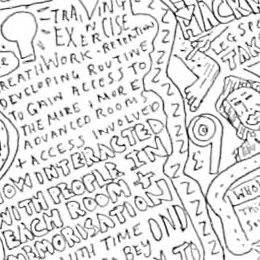 TRAINING
EXERCISE
BREATHWORK - RETENTION
DEVELOPING ROUTINE
TO GAIN ACCESS TO
THE MORE + MORE
ADVANCED ROOMS
+ ACCESS INVOLVED
HOW INTERACTED
WITH PEOPLE IN
EACH ROOM +
MEMORISATION
WITH TIME DND
BEY
TO
HACKI
LEGS
TAK
WHO